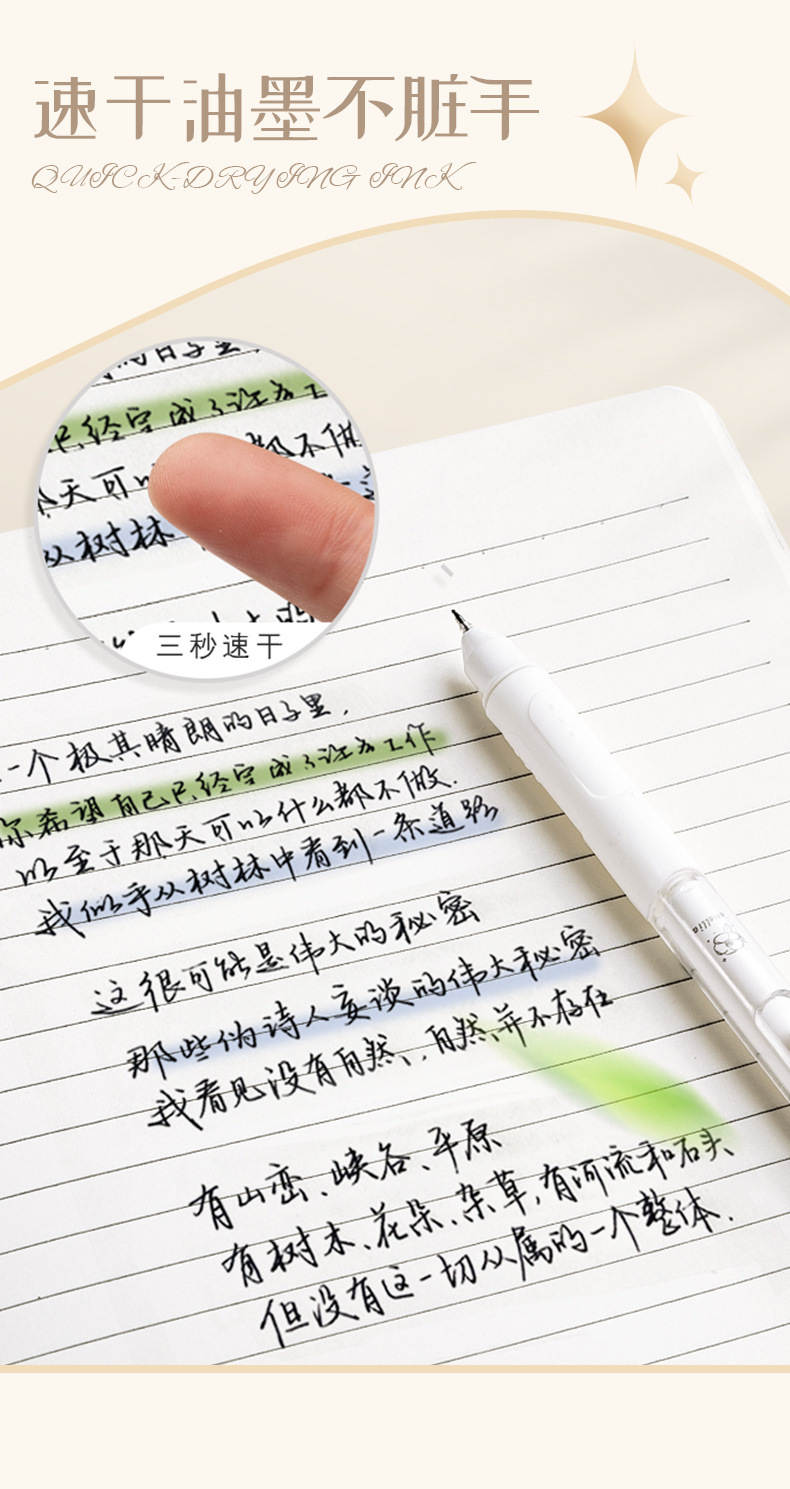 速干油墨不脏手
QUICK-DRYING INK
的日子里
已经完成了许多工
都不做
天可以
从树林
三秒速干
一个极其晴朗的日子里,
你希望自己已经完成了许多工作
以至于那天可以什么都不做.
我似乎从树林中看到一条道路
这很可能是伟大的秘密
那些伪诗人妄谈的伟大秘密
我看见没有自然、,自然,并不存在
有山峦、峡谷、平原
有树木、花朵、杂草,有河流和石头、
但没有这一切从属的一个整体.